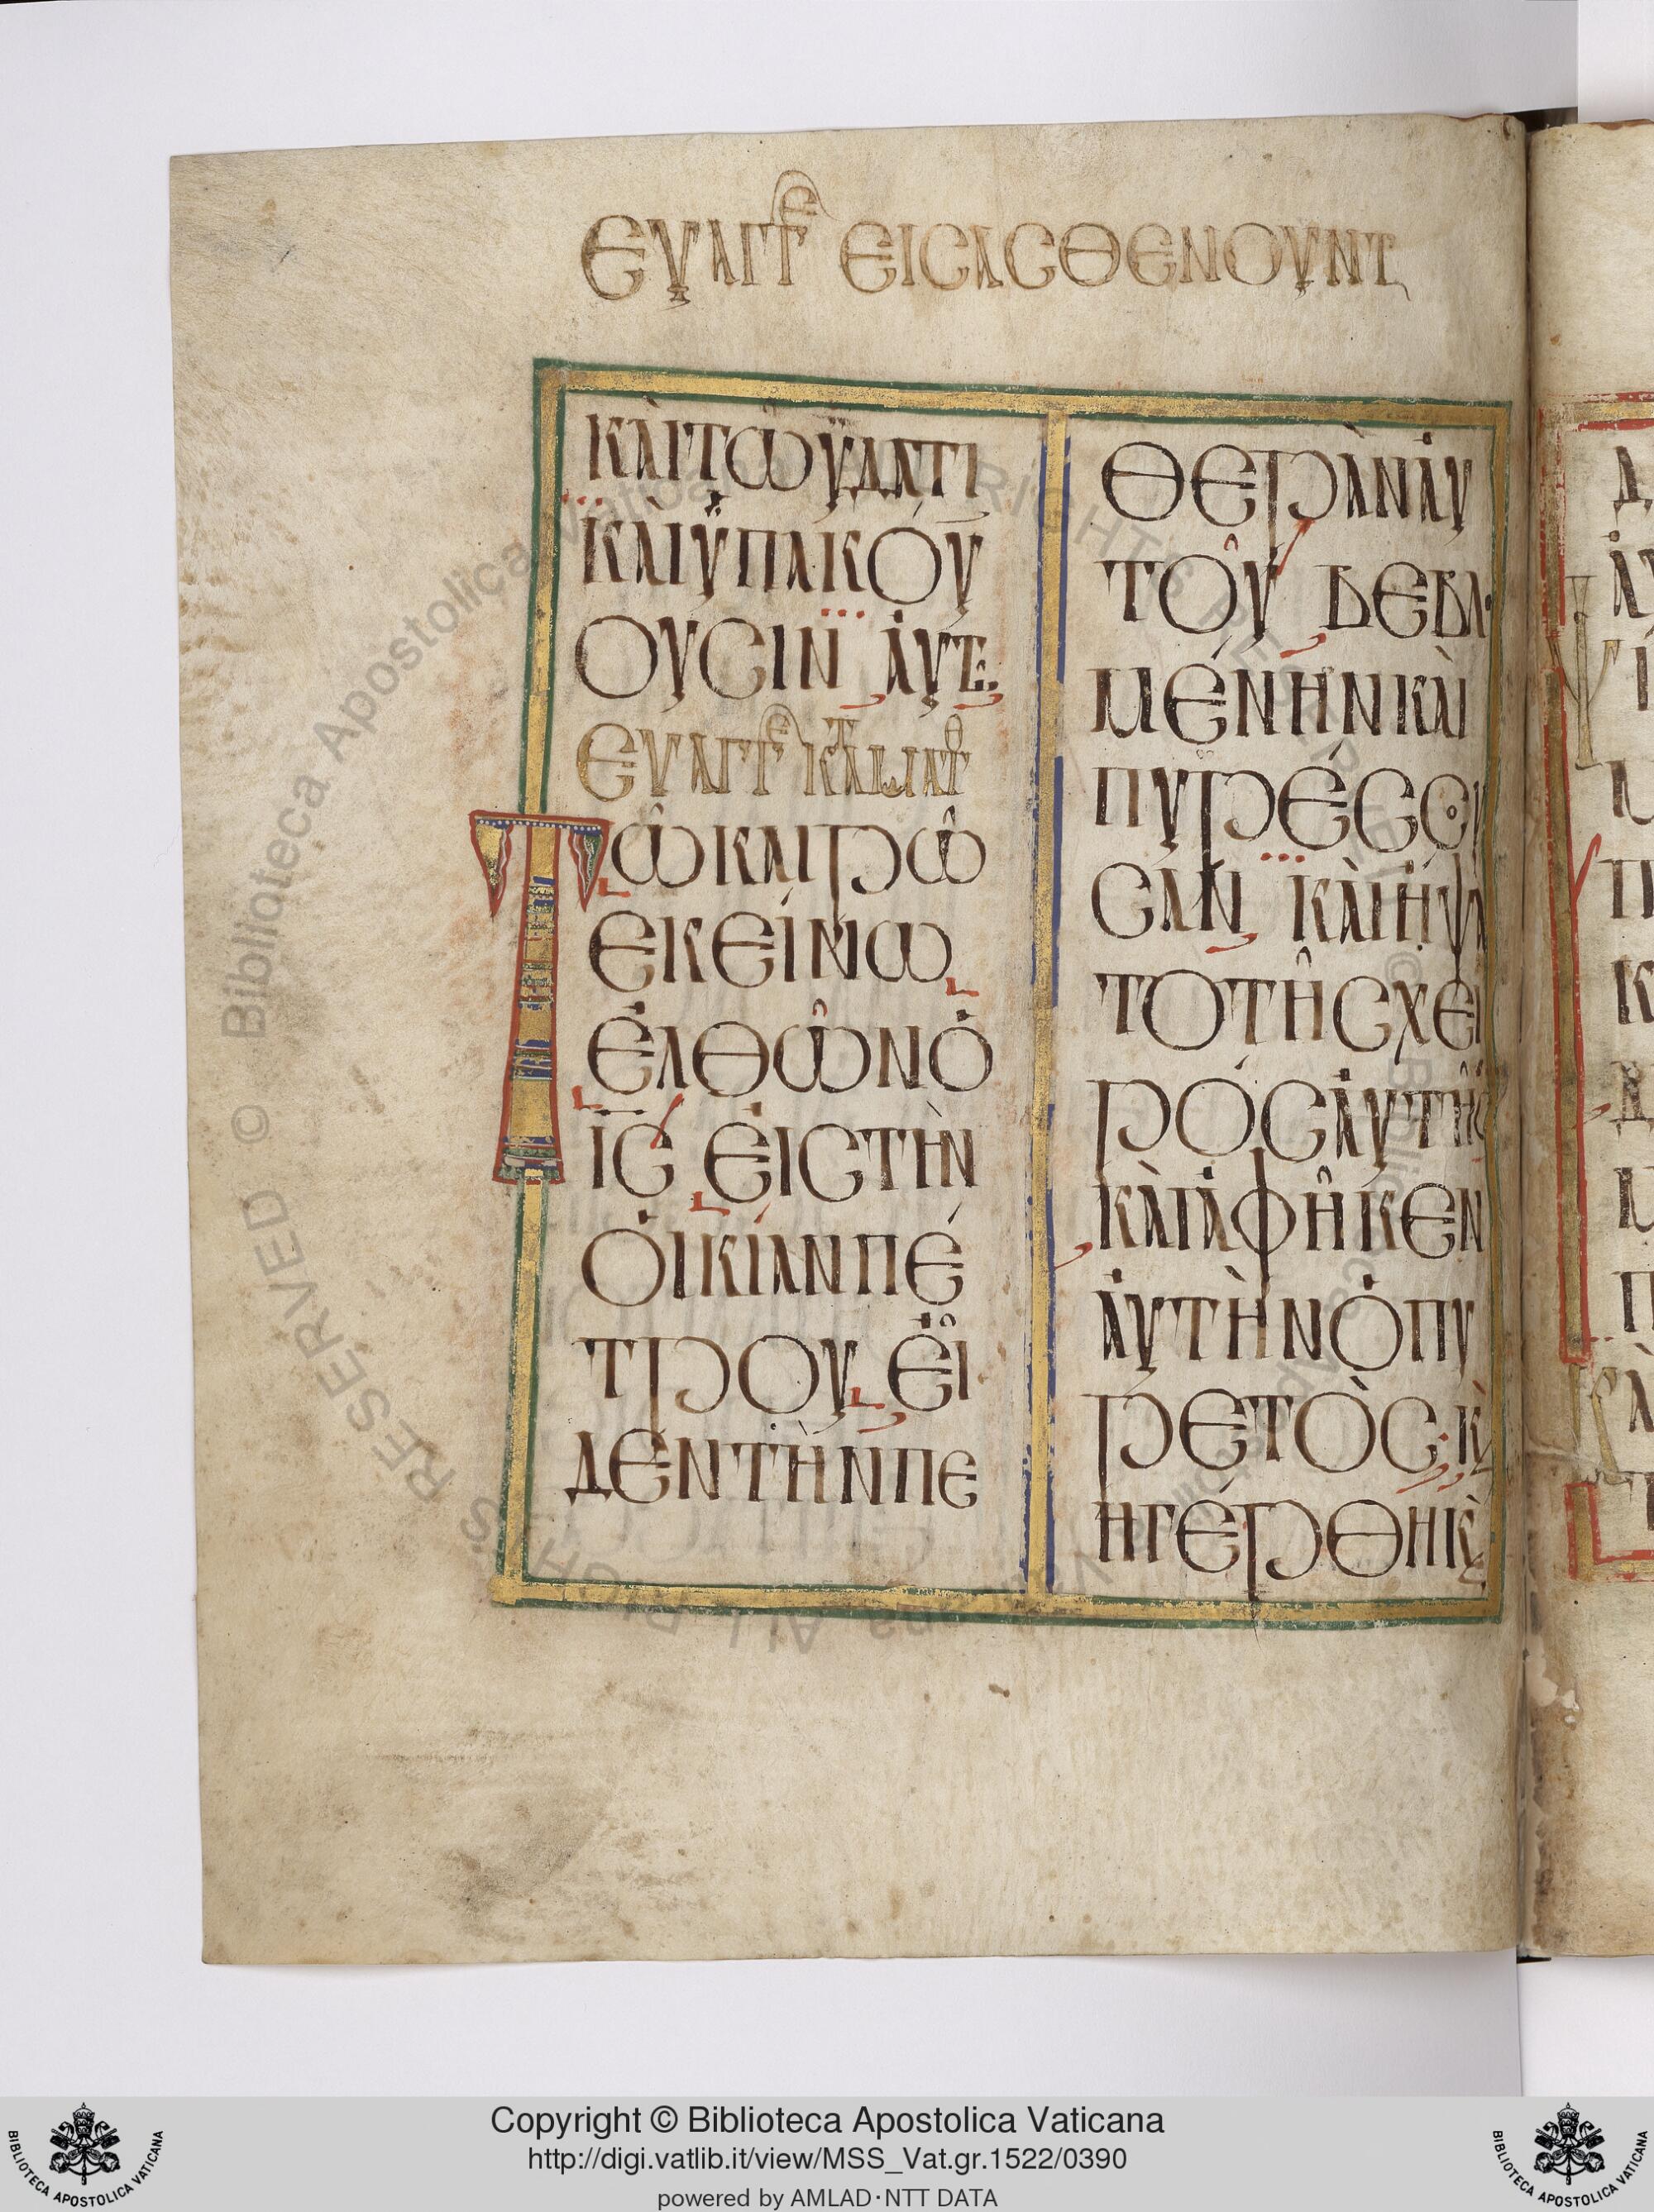 ΕΥΑΓΓΕ ΕΙΣ ΑΣΘΕΝΟΥΝΤ
ΚΑῚ ΤΩ ΫΔΑΤΙ
ΚΑῚ ΫΠΑΚΟΎ
ΟΥϹΙΝ ἈΥΤ
ΕΥΑΓΓΕ ΚΑΤ ΜΑΤΘ
ΤΩ͂ ΚΑΙΡΩ͂
ΕΚΕΊΝΩ
ἘΛΘΩ͂Ν Ὁ
ΙϹ ἘΙϹ ΤῊΝ
ὈΙΚΊΑΝ ΠΈ
ΤΡΟΥ ΕἾ
ΔΕΝ ΤῊΝ ΠΕ
ΘΕΡᾺΝ ἈΥ
ΤΟΥ͂ ΒΕΒΛ
ΜΈΝΗΝ ΚΑῚ
ΠΥΡΈϹϹΟΥ
ϹΑΝ ΚΑῚ ἭΨΑ
ΤΟ ΤΗ͂Ϲ ΧΕΙ
ΡΌϹ ἈΥΤΗ͂Ϲ
ΚΑῚ ἈΦΗ͂ΚΕΝ
ἈΥΤῊΝ Ὁ ΠΥ
ΡΕΤῸϹ· Κ̀
ΗΓΈΡΘΗ Κ̀
Copyright © Biblioteca Apostolica Vaticana
http://digi.vatlib.it/view/MSS_Vat.gr.1522/0390
powered by AMLAD·NTT DATA
BIBLIOTECA APOSTOLICA VATICANA
BIBLIOTECA APOSTOLICA VATICANA